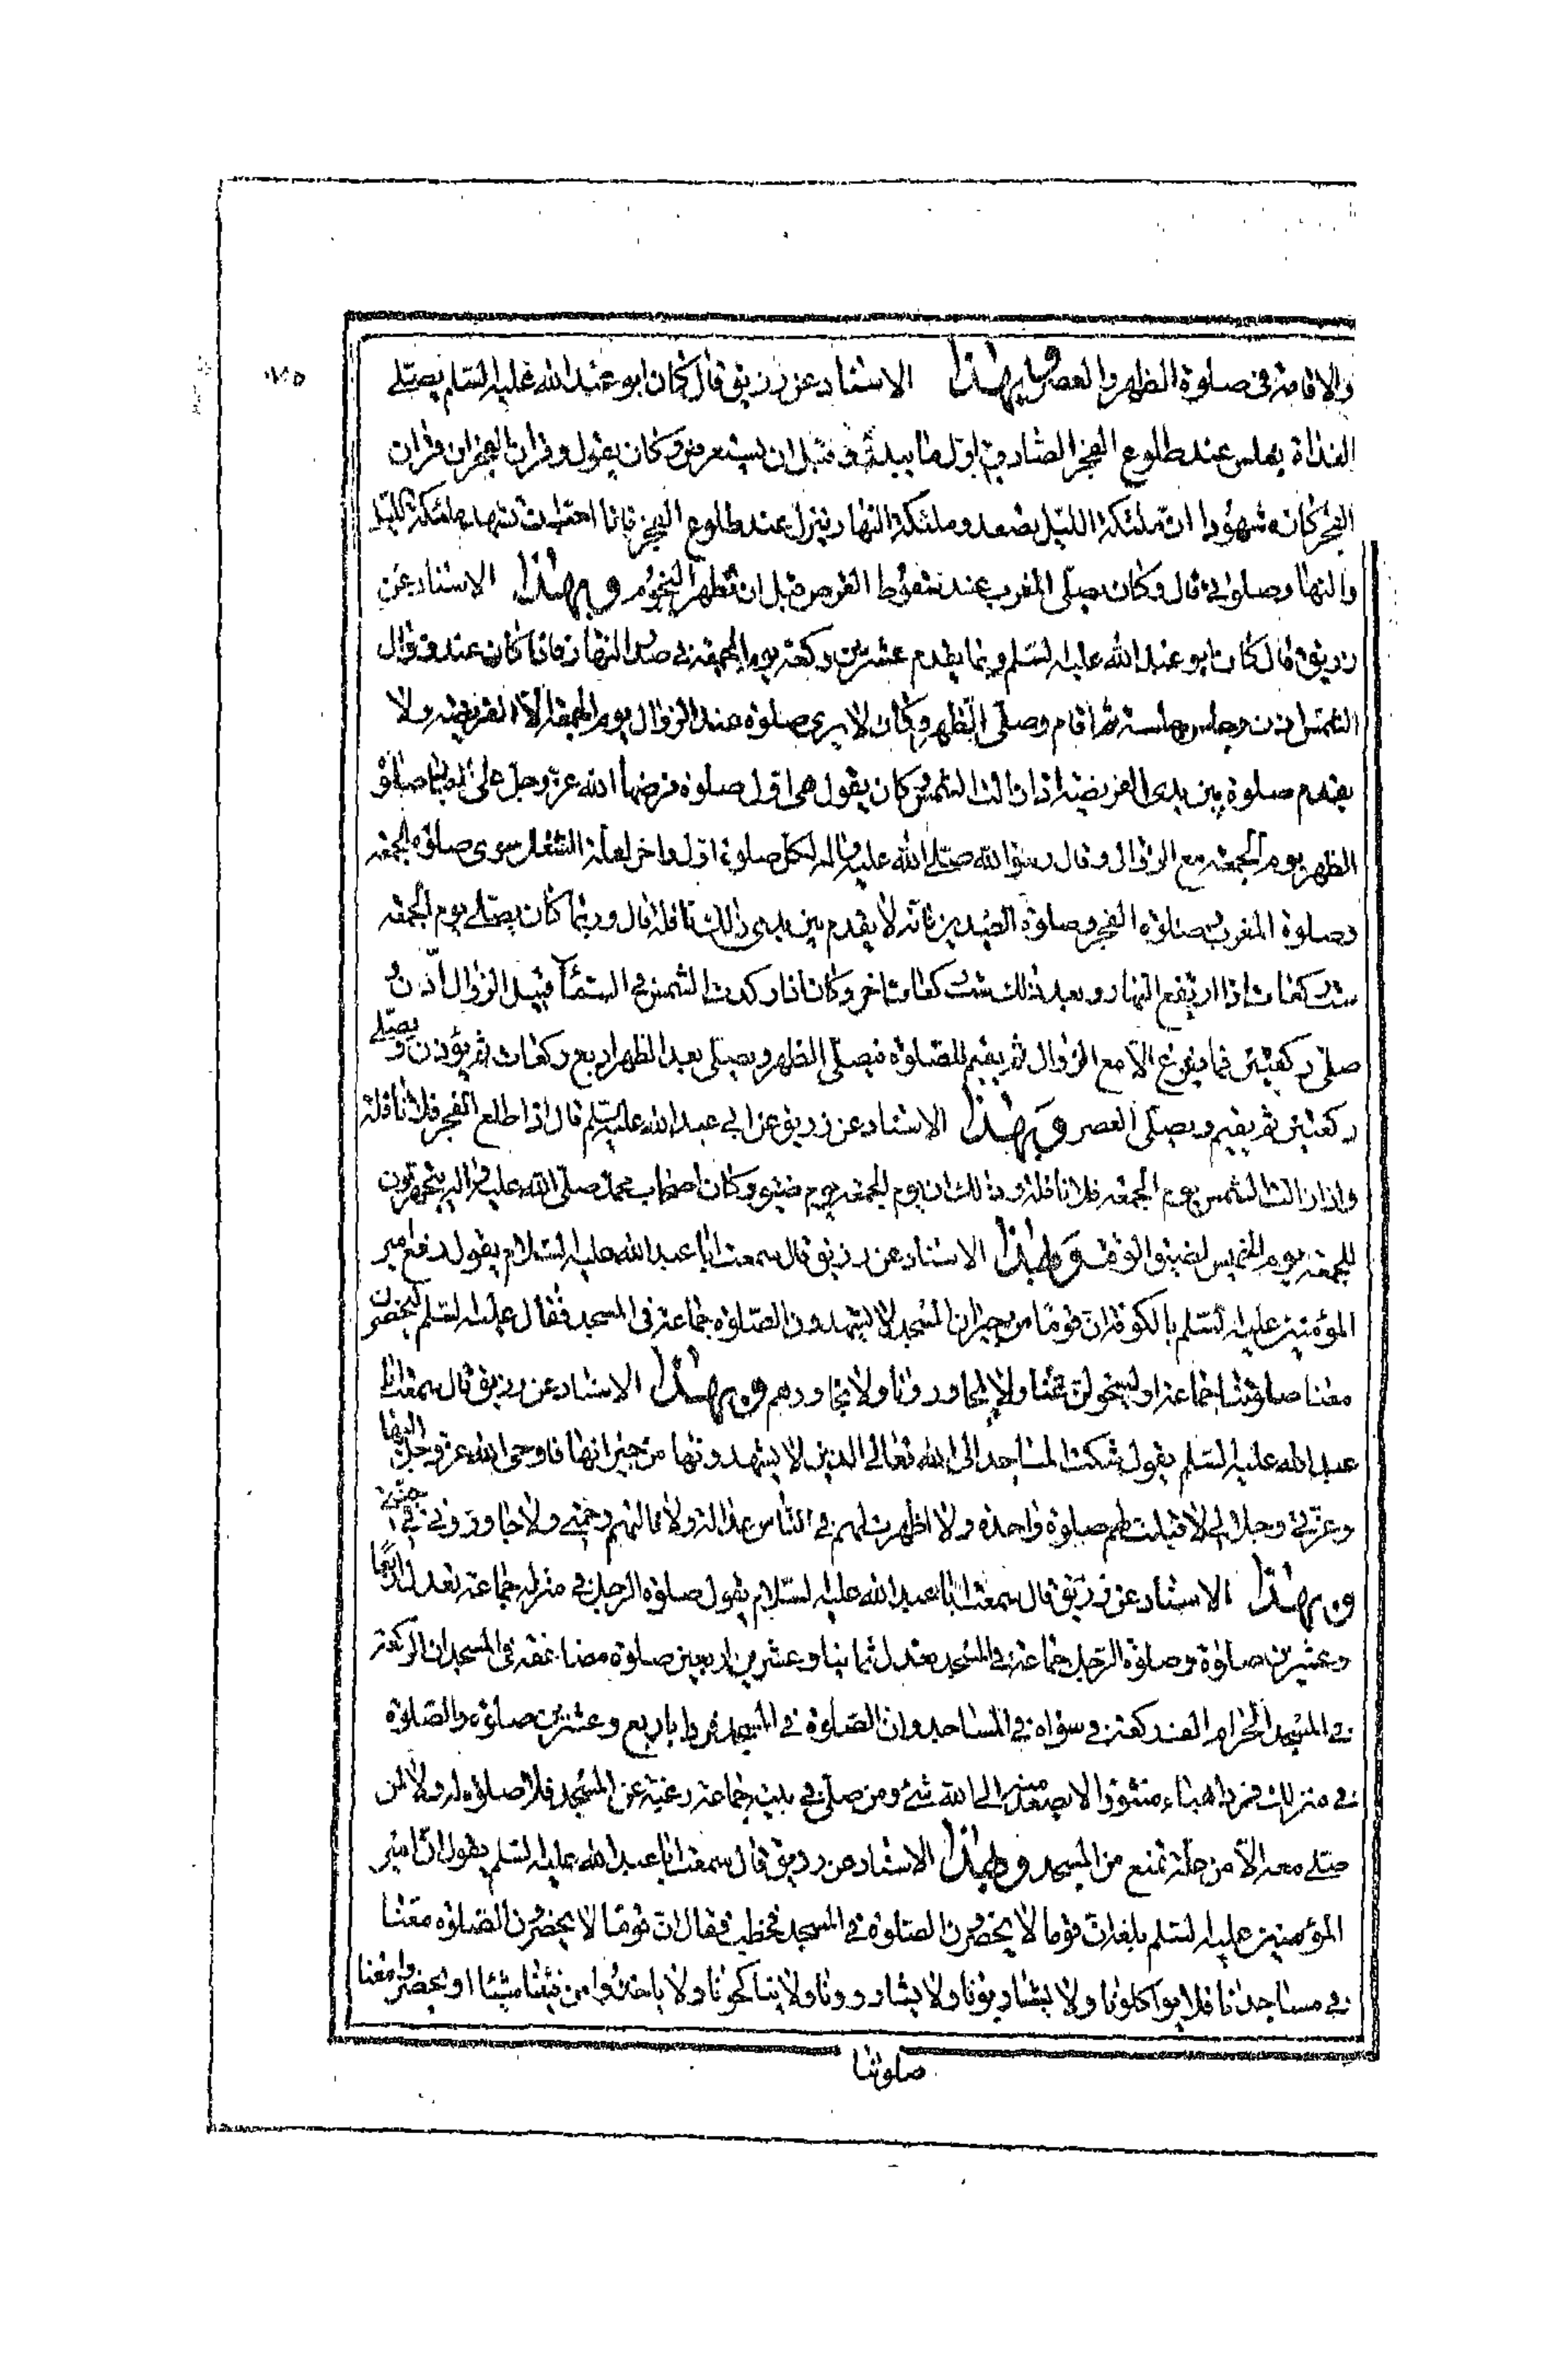 والاقامة فى صلوة الظهر والعصر وبهذا الاسناد عن رزيق قال كان ابو عبد الله عليه السلم يصلى
الغداة بغلس عند طلوع الفجر الصادق اول ما يبدو قبل ان يستعرض وكان يقول وقران الفجر ان قران
الفجر كان مشهودا ان ملئكة الليل يصعد وملئكة النهار ينزل عند طلوع الفجر فانا احب ان تشهد ملئكة الليل
والنهار صلوتى قال وكان يصلى المغرب عند سقوط القرص قبل ان تظهر النجوم وبهذا الاسناد عن
رزيق قال كان ابو عبد الله عليه السلم ربما يقدم عشرين ركعة يوم الجمعة فى صدر النهار فاذا كان عند زوال
الشمس اذن وجلس جلسة ثم اقام وصلى الظهر وكان لا يرى صلوة عند الزوال يوم الجمعة الا الفريضة ولا
يقدم صلوة بين يدى الفريضة اذا زالت الشمس وكان يقول هى اول صلوة فرضها الله عز وجل على العباد صلوة
الظهر يوم الجمعة مع الزوال وقال رسول الله صلى الله عليه واله لكل صلوة اول واخر لعلة الشغل سوى صلوة الجمعة
وصلوة المغرب وصلوة الفجر وصلوة العيدين فانه لا يقدم بين يدى ذلك نافلة قال وربما كان يصلى يوم الجمعة
ست ركعات اذا ارتفع النهار وبعد ذلك ست ركعات اخر وكان اذا ركدت الشمس فى السماء قبيل الزوال اذن و
صلى ركعتين فما يفرغ الا مع الزوال ثم يقيم للصلوة فيصلى الظهر ويصلى بعد الظهر اربع ركعات ثم يؤذن ويصلى
ركعتين ثم يقيم ويصلى العصر وبهذا الاسناد عن رزيق عن ابى عبد الله عليه السلم قال اذا طلع الفجر فلا نافلة
واذا زالت الشمس يوم الجمعة فلا نافلة وذلك ان يوم الجمعة يوم ضيق وكان اصحاب محمد صلى الله عليه واله يتجهزون
للجمعة يوم الخميس لضيق الوقت وبهذا الاسناد عن رزيق قال سمعت ابا عبد الله عليه السلام يقول رفع امير
المؤمنين عليه السلم بالكوفة ان قوما من جيران المسجد لا يشهدون الصلوة جماعة فى المسجد فقال عليه السلم ليحضرن
معنا صلوتنا جماعة او ليتحولن عنا ولا يجاورونا ولا نجاورهم وبهذا الاسناد عن رزيق قال سمعت ابا
عبد الله عليه السلم يقول شكت المساجد الى الله تعالى الذين لا يشهدونها من جيرانها فاوحى الله عز وجل اليها
وعزتى وجلالى لا قبلت لهم صلوة واحدة ولا اظهرت لهم فى الناس عدالة ولا نالتهم رحمتى ولا جاورونى فى جنتى
وبهذا الاسناد عن رزيق قال سمعت ابا عبد الله عليه السلام يقول صلوة الرجل فى منزله جماعة تعدل اربعا
وعشرين صلوة وصلوة الرجل جماعة فى المسجد تعدل ثمانيا واربعين صلوة مضاعفة فى المسجد وان الركعة
فى المسجد الحرام الف ركعة فى سواه فى المساجد وان الصلوة فى المسجد فردا باربع وعشرين صلوة والصلوة
فى منزلك فردا هباء منثورا لا يصعد منه الى الله شئ ومن صلى فى بيته جماعة رغبة عن المسجد فلا صلوة له ولا لمن
صلى معه الا من علة تمنع من المسجد وبهذا الاسناد عن رزيق قال سمعت ابا عبد الله عليه السلم يقول ان امير
المؤمنين عليه السلم بلغه ان قوما لا يحضرون الصلوة فى المسجد فخطب فقال ان قوما لا يحضرون الصلوة معنا
فى مساجدنا فلا يواكلونا ولا يشاربونا ولا يشاورونا ولا يناكحونا ولا ياخذوا من فيئنا شيئا او يحضروا معنا
صلوتنا